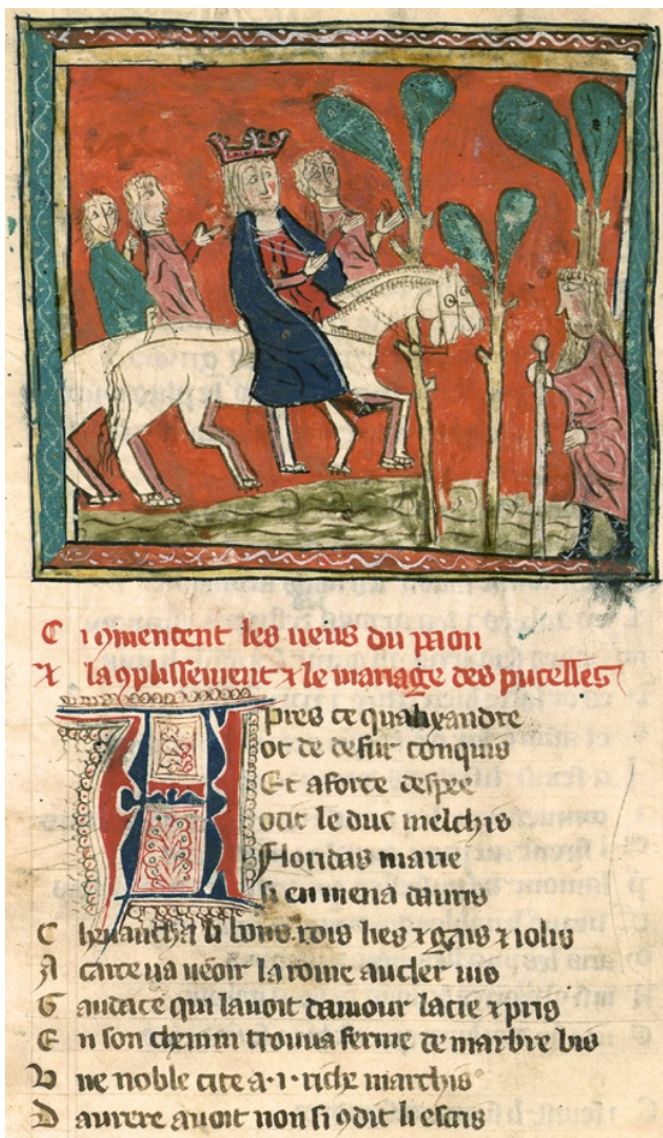 C i omencent les ueus du paon
⁊ la ꝯplissement ⁊ le mariage des pucelles
A pres ce qualixandre
ot de defur conquis
Et aforce despee
ocit le duc melchis
Floridas marie
si en mena dauris
C heuaucha li bons rois lies ⁊ gais ⁊ iolis
A carce ua ueoir la roine au cler uis
G audace qui lauoit damour lacie ⁊ pris
E n son chemin trouua ferme de marbre bis
V ne noble cite a·i· riche marchis
D aurere auoit non si ꝯdit li escris